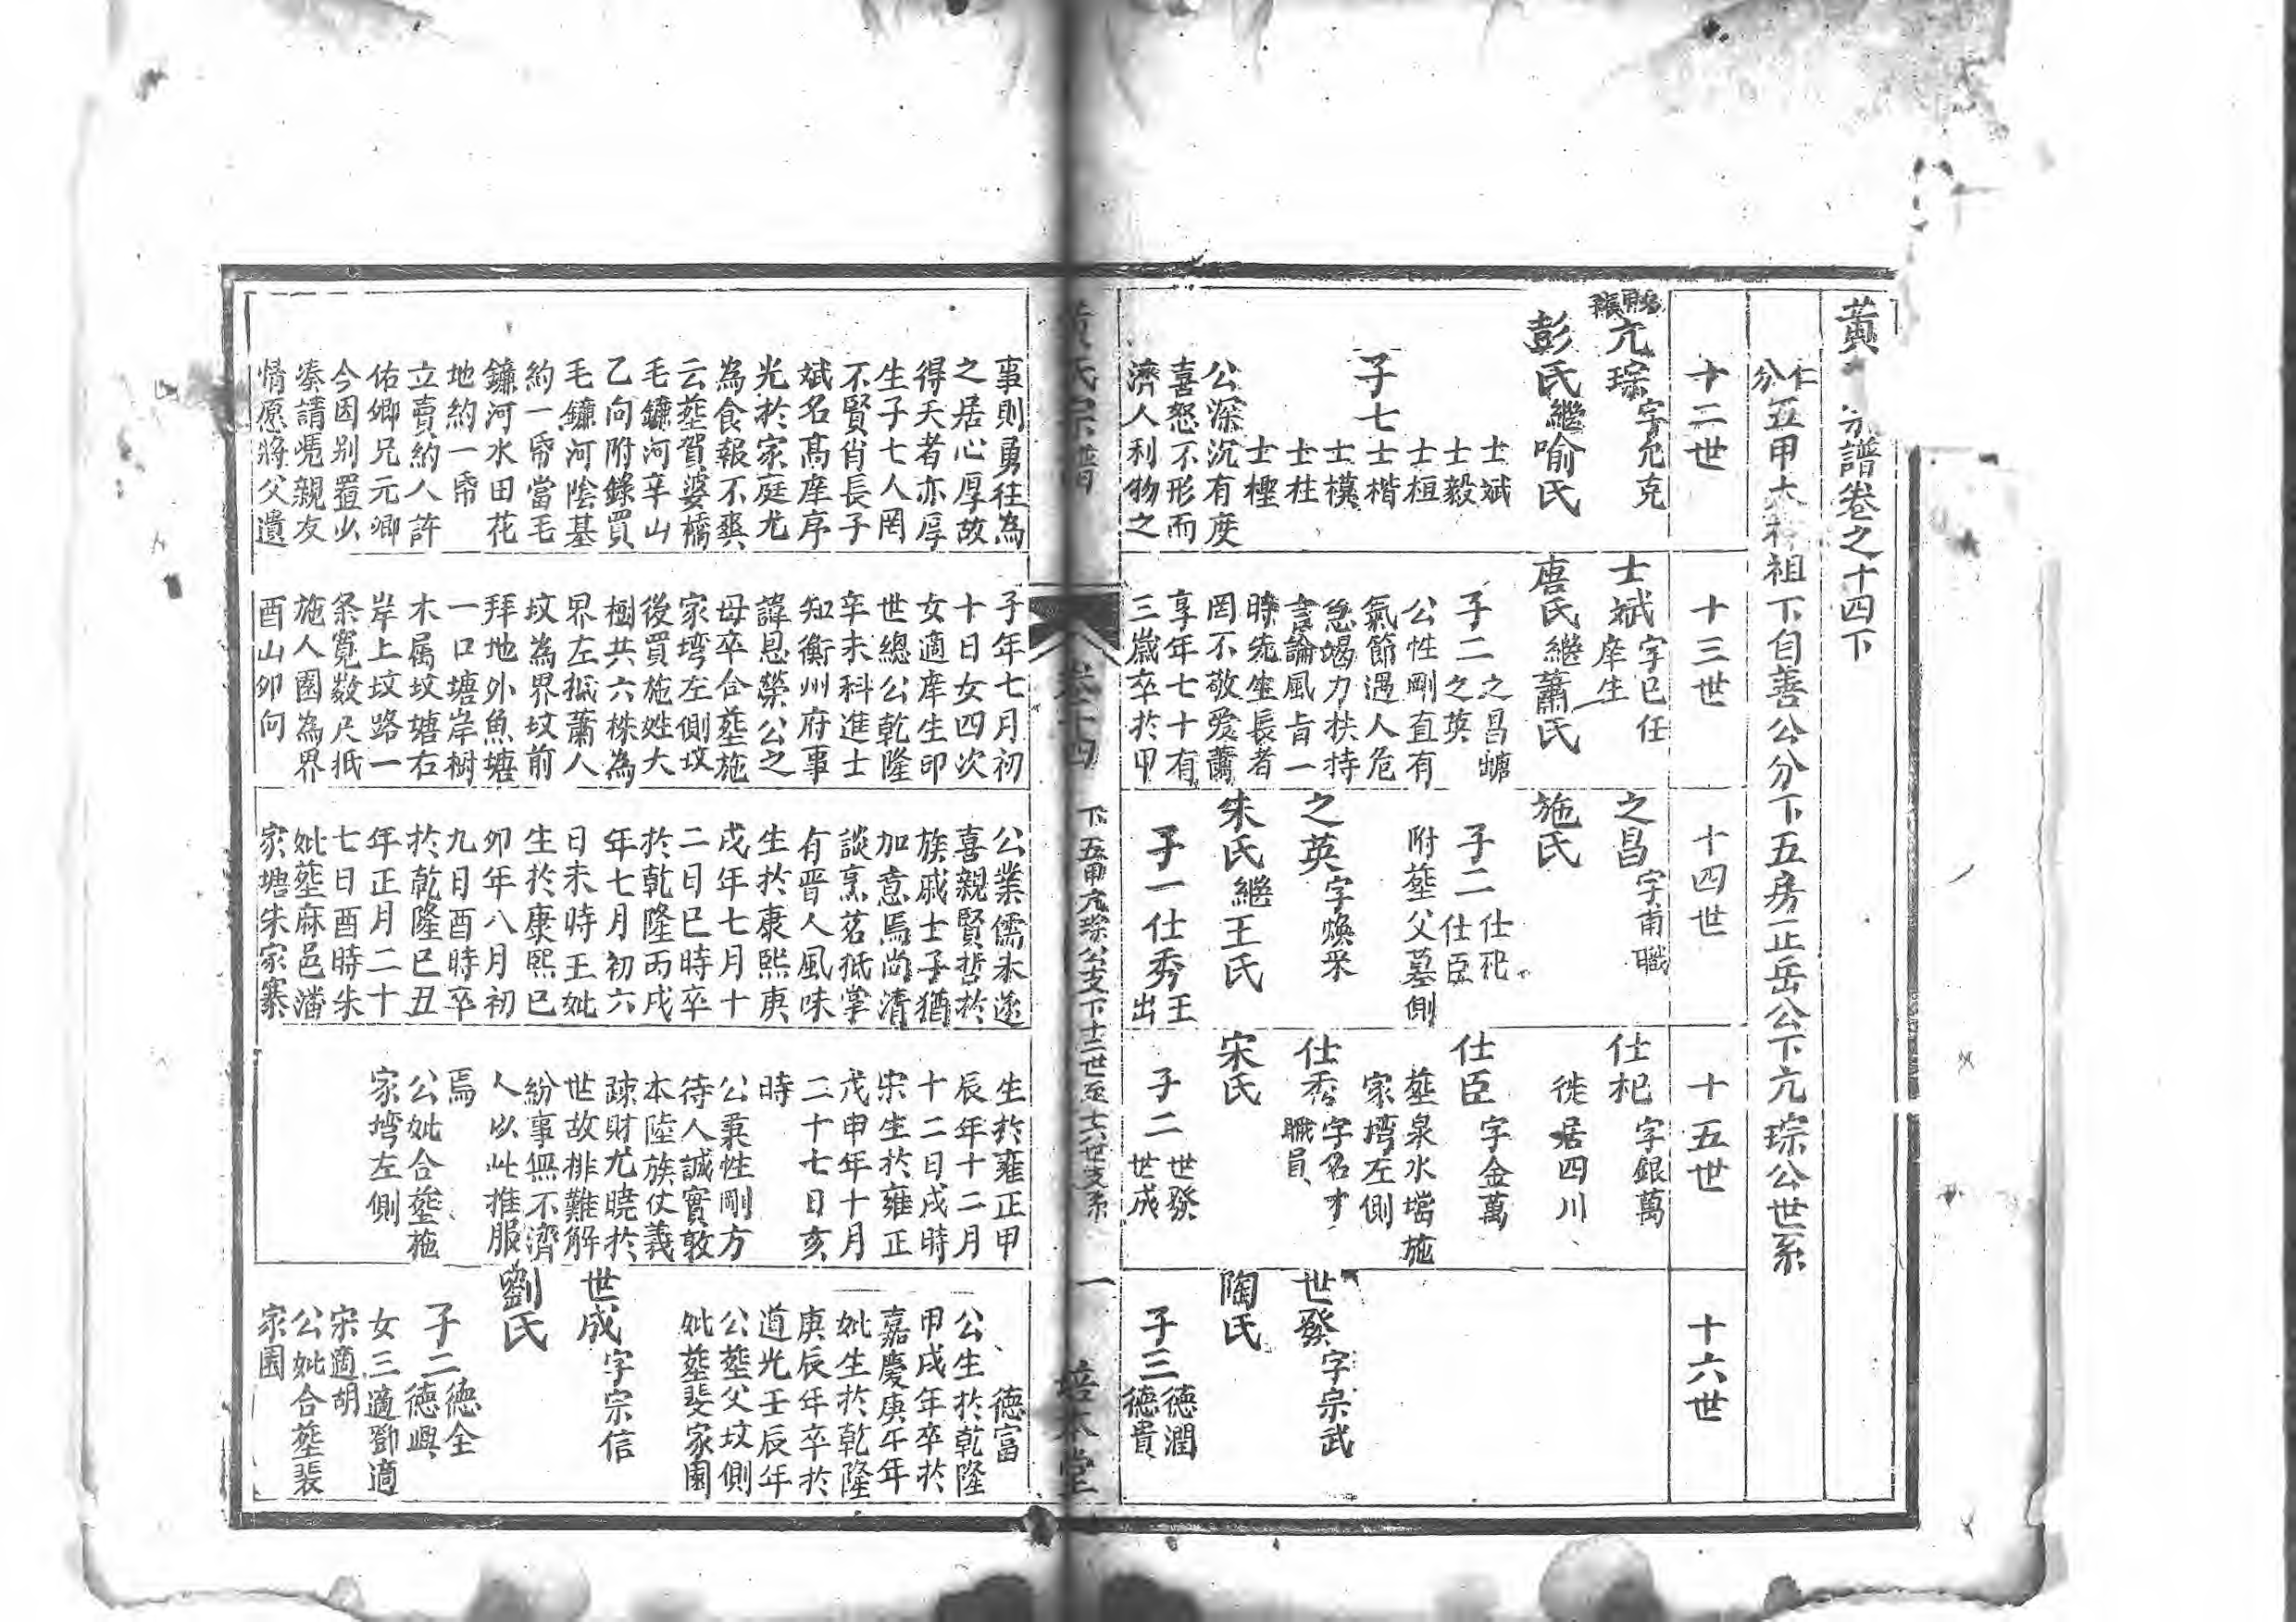 黃
宗譜卷之十四下
仁分五甲大祥祖下自善公分下五房正岳公下亢琮公世系
十二世
亢琮字允克
彭氏繼喻氏
子七
士斌
士毅
士桓
士楷
士模
士柱
士檉
公深沉有度
喜怒不形而
濟人利物之
十三世
士斌字已任
庠生
唐氏繼蕭氏
子二
之昌
之英
公性剛直有
氣節遇人危
急竭力扶持
言論風旨一
時先生長者
罔不敬愛蕭
享年七十有
三歲卒於甲
十四世
之昌字甫職
施氏
子二
仕杞
仕臣
附塟父墓側
之英字煥采
朱氏繼王氏
子一仕秀王出
十五世
仕杞字銀萬
徙居四川
仕臣字金萬
塟泉水壋施
家塆左側
仕秀字名才
職員
宋氏
子二
世發
世成
十六世
世發字宗武
陶氏
子三
德潤
德貴
黃氏宗譜
卷十四
下五甲亢琮公支下十二世至十六世支系
一
培本堂
事則勇往為
之居心厚故
得天者亦厚
生子七人罔
不賢肖長子
斌名髙庠序
光於家庭尤
為食報不爽
云塟賀婆橋
毛鐮河辛山
乙向附錄買
毛鐮河陰基
約一帋當毛
鐮河水田花
地約一帋
立賣約人許
佑卿兄元卿
今因别置山
凑請憑親友
情愿將父遺
子年七月初
十日女四次
女適庠生邱
世總公乾隆
辛未科進士
知衡州府事
諱恩榮公之
母卒合塟施
家塆左側坟
後買施姓大
樹共六株為
界左抵蕭人
坟為界坟前
拜地外魚塘
一口塘岸樹
木属坟塘右
岸上坟路一
条寬數尺抵
施人園為界
酉山夘向
公業儒未遂
喜親賢哲於
族戚士子猶
加意焉尚清
談烹茗抵掌
有晋人風味
生於康熙庚
戌年七月十
二日巳時卒
於乾隆丙戌
年七月初六
日未時王妣
生於康熙已
夘年八月初
九日酉時卒
於乾隆己丑
年正月二十
七日酉時朱
妣塟麻邑潘
家塘朱家寨
生於雍正甲
辰年十二月
十二日戌時
宋生於雍正
戊申年十月
二十七日亥
時
公秉性剛方
待人誠實敦
本陸族仗義
疎財尤曉於
世故排難解
紛事無不濟
人以此推服
焉
公妣合塟施
家塆左側
德富
公生於乾隆
甲戌年卒於
嘉慶庚午年
妣生於乾隆
庚辰年卒於
道光壬辰年
公塟父坟側
妣塟斐家園
世成字宗信
劉氏
子二
德全
德興
女三適鄧適
宋適胡
公妣合塟裴
家園